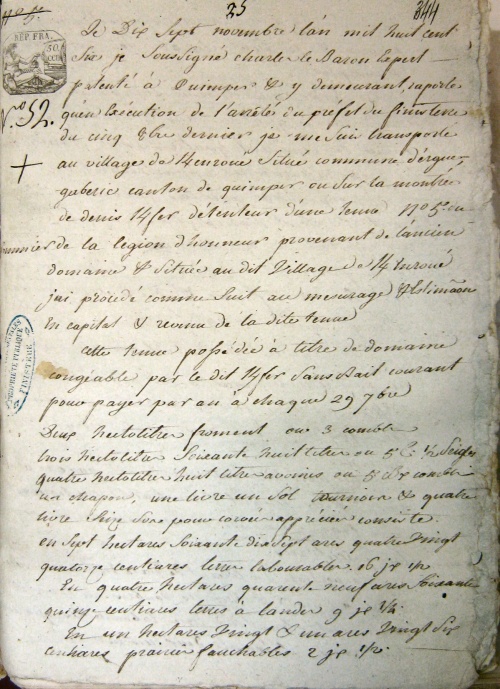 25
344
REP. FRA.
50 CENT
N.º 52.
Le Dix Sept novembre l'an mil huit cent
Six je Soussigné charles le Baron Expert
patenté à Quimper & y demeurant, raporte
qu'en Exécution de l'arrêté du préfet du finistere
du cinq 8bre dernier je me Suis transporté
au village de Kenroué Situé commune d'ergué
gaberic canton de quimper ou Sur la montrée
de denis Kfer détenteur d'une tenue Nº 5 du
sommier de la legion d'honneur provenant de l'ancien
domaine & Située au dit Village de Kenroué
j'ai procédé comme Suit au mesurage & Estimaõn
En capital & revenu de la dite tenue
Cette tenue possédée à titre de domaine
congéable par le dit Kfer Sans Bail courant
pour payer par an à chaque 29 7bre
Deux hectolitres froment ou 3 combles
trois hectolitres Soixante huit litres ou 5 C. 1/2 Seigles
quatre hectolitres huit litres avoines ou 5 combles
un chapon, une livre un Sol tournois & quatre
livre Seize Sox pour corvée appréciée consiste
en Sept hectares Soixante dix Sept ares quatre Vingt
quatorze centiares terre labourables 16 js 1/2
En quatre hectares quarente neuf ares Soixante
quinze centiares terres à landes 9 js 1/4
En un hectares Vingt & un ares Vingt Six
centiares prairies fauchables 2 js 1/2.
PROPRIETE PUBLIQUE
FINISTERE